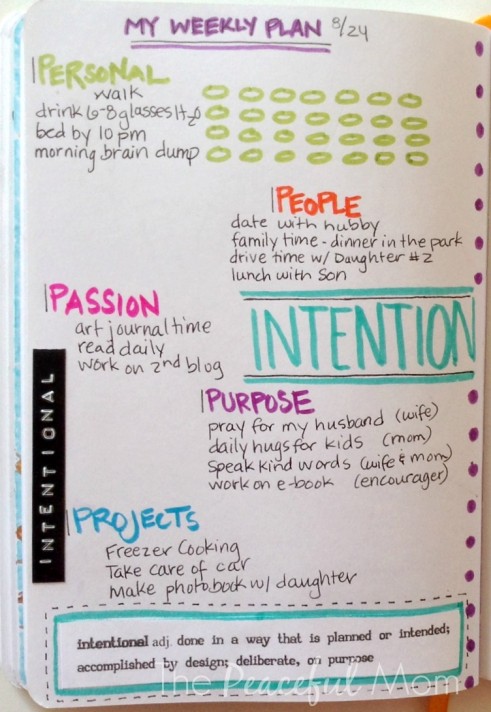 MY WEEKLY PLAN 8/24
PERSONAL
walk
drink 6-8 glasses H2O
bed by 10 pm
morning brain dump
PEOPLE
date with hubby
family time - dinner in the park
drive time w/ Daughter #2
lunch with Son
PASSION
art journal time
read daily
work on 2nd blog
INTENTION
INTENTIONAL
PURPOSE
pray for my husband (wife)
daily hugs for kids (mom)
speak kind words (wife & mom)
work on e-book (encourager)
PROJECTS
Freezer Cooking
Take care of car
Make photobook w/ daughter
intentional adj. done in a way that is planned or intended;
accomplished by design; deliberate, on purpose
The Peaceful Mom